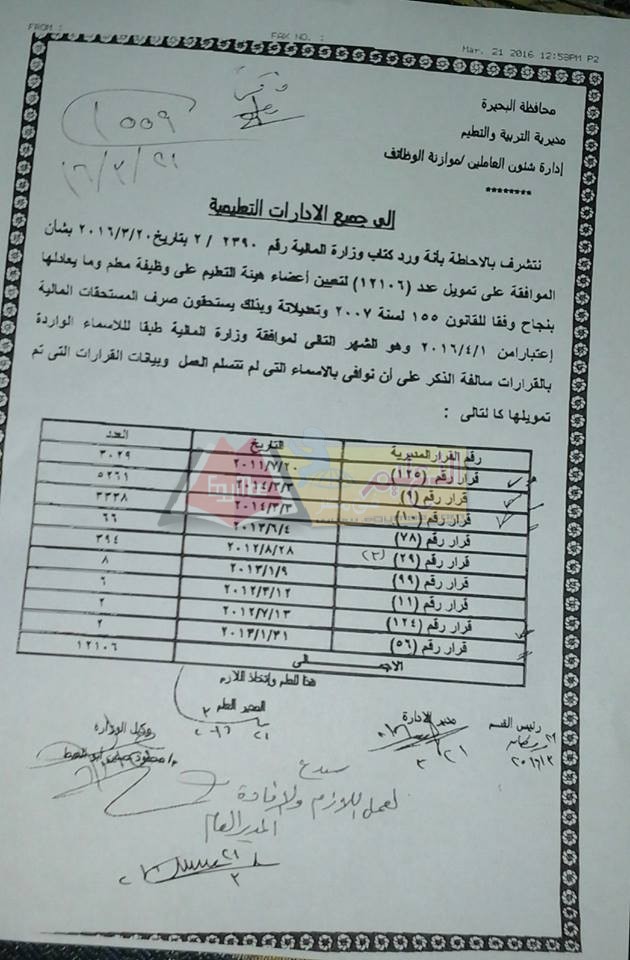 FROM :
FAX NO. :
Mar. 21 2016 12:59PM P2
محافظة البحيرة
مديرية التربية والتعليم
إدارة شئون العاملين /موازنة الوظائف
********
١٥٥٩
٢٠١٦/٣/٢١
إلى جميع الادارات التعليمية
نتشرف بالاحاطة بأنة ورد كتاب وزارة المالية رقم ٢٣٩٠ / ٢ بتاريخ ٢٠١٦/٣/٢٠ بشأن
الموافقة على تمويل عدد (١٢١٠٦) لتعيين أعضاء هيئة التعليم على وظيفة معلم وما يعادلها
بنجاح وفقا للقانون ١٥٥ لسنة ٢٠٠٧ وتعديلاتة وبذلك يستحقون صرف المستحقات المالية
إعتبارامن ٢٠١٦/٤/١ وهو الشهر التالى لموافقة وزارة المالية طبقا للاسماء الواردة
بالقرارات سالفة الذكر على أن نوافى بالاسماء التى لم تتسلم العمل وبيانات القرارات التى تم
تمويلها كا لتالى :
رقم القرار المديرية التاريخ العدد
قرار رقم (١٢٥) ٢٠١١/٧/٢٠ ٣٠٢٩
قرار رقم (٩) ٢٠١٤/٣/٣ ٥٢٦١
قرار رقم (١٠) ٢٠١٤/٣/٣ ٣٣٣٨
قرار رقم (٧٨) ٢٠١٢/٦/٤ ٦٦
قرار رقم (٢٩) ٢٠١٢/٨/٢٨ ٣٩٤
قرار رقم (٩٩) ٢٠١٣/١/٩ ٨
قرار رقم (١١) ٢٠١٢/٣/١٢ ٦
قرار رقم (١٢٤) ٢٠١٢/٧/١٣ ٢
قرار رقم (٥٦) ٢٠١٣/١/٣١ ٢
الاجمـــــــــالى ١٢١٠٦
هذا للعلم وإتخاذ اللازم
رئيس القسم مدير الادارة المدير العام وكيل الوزارة
لعمل اللازم والإفادة
المدير العام